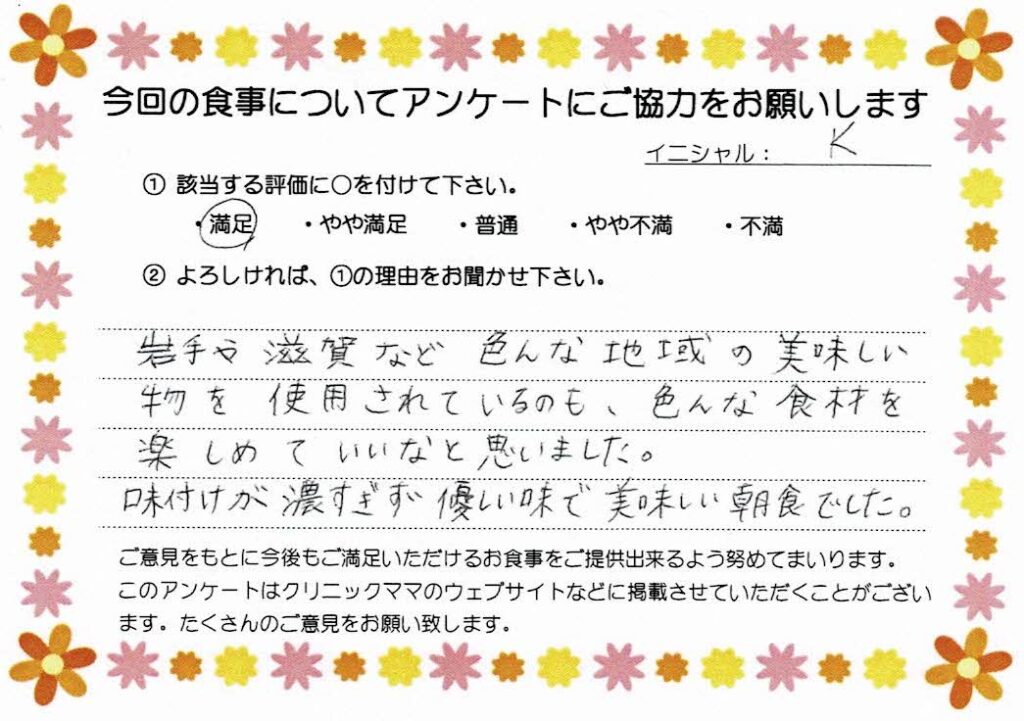 今回の食事についてアンケートにご協力をお願いします
イニシャル： K
① 該当する評価に○を付けて下さい。
・満足 ・やや満足 ・普通 ・やや不満 ・不満
② よろしければ、①の理由をお聞かせ下さい。
岩手や滋賀など色んな地域の美味しい
物を使用されているのも、色んな食材を
楽しめていいなと思いました。
味付けが濃すぎず優しい味で美味しい朝食でした。
ご意見をもとに今後もご満足いただけるお食事をご提供出来るよう努めてまいります。
このアンケートはクリニックママのウェブサイトなどに掲載させていただくことがござい
ます。たくさんのご意見をお願い致します。